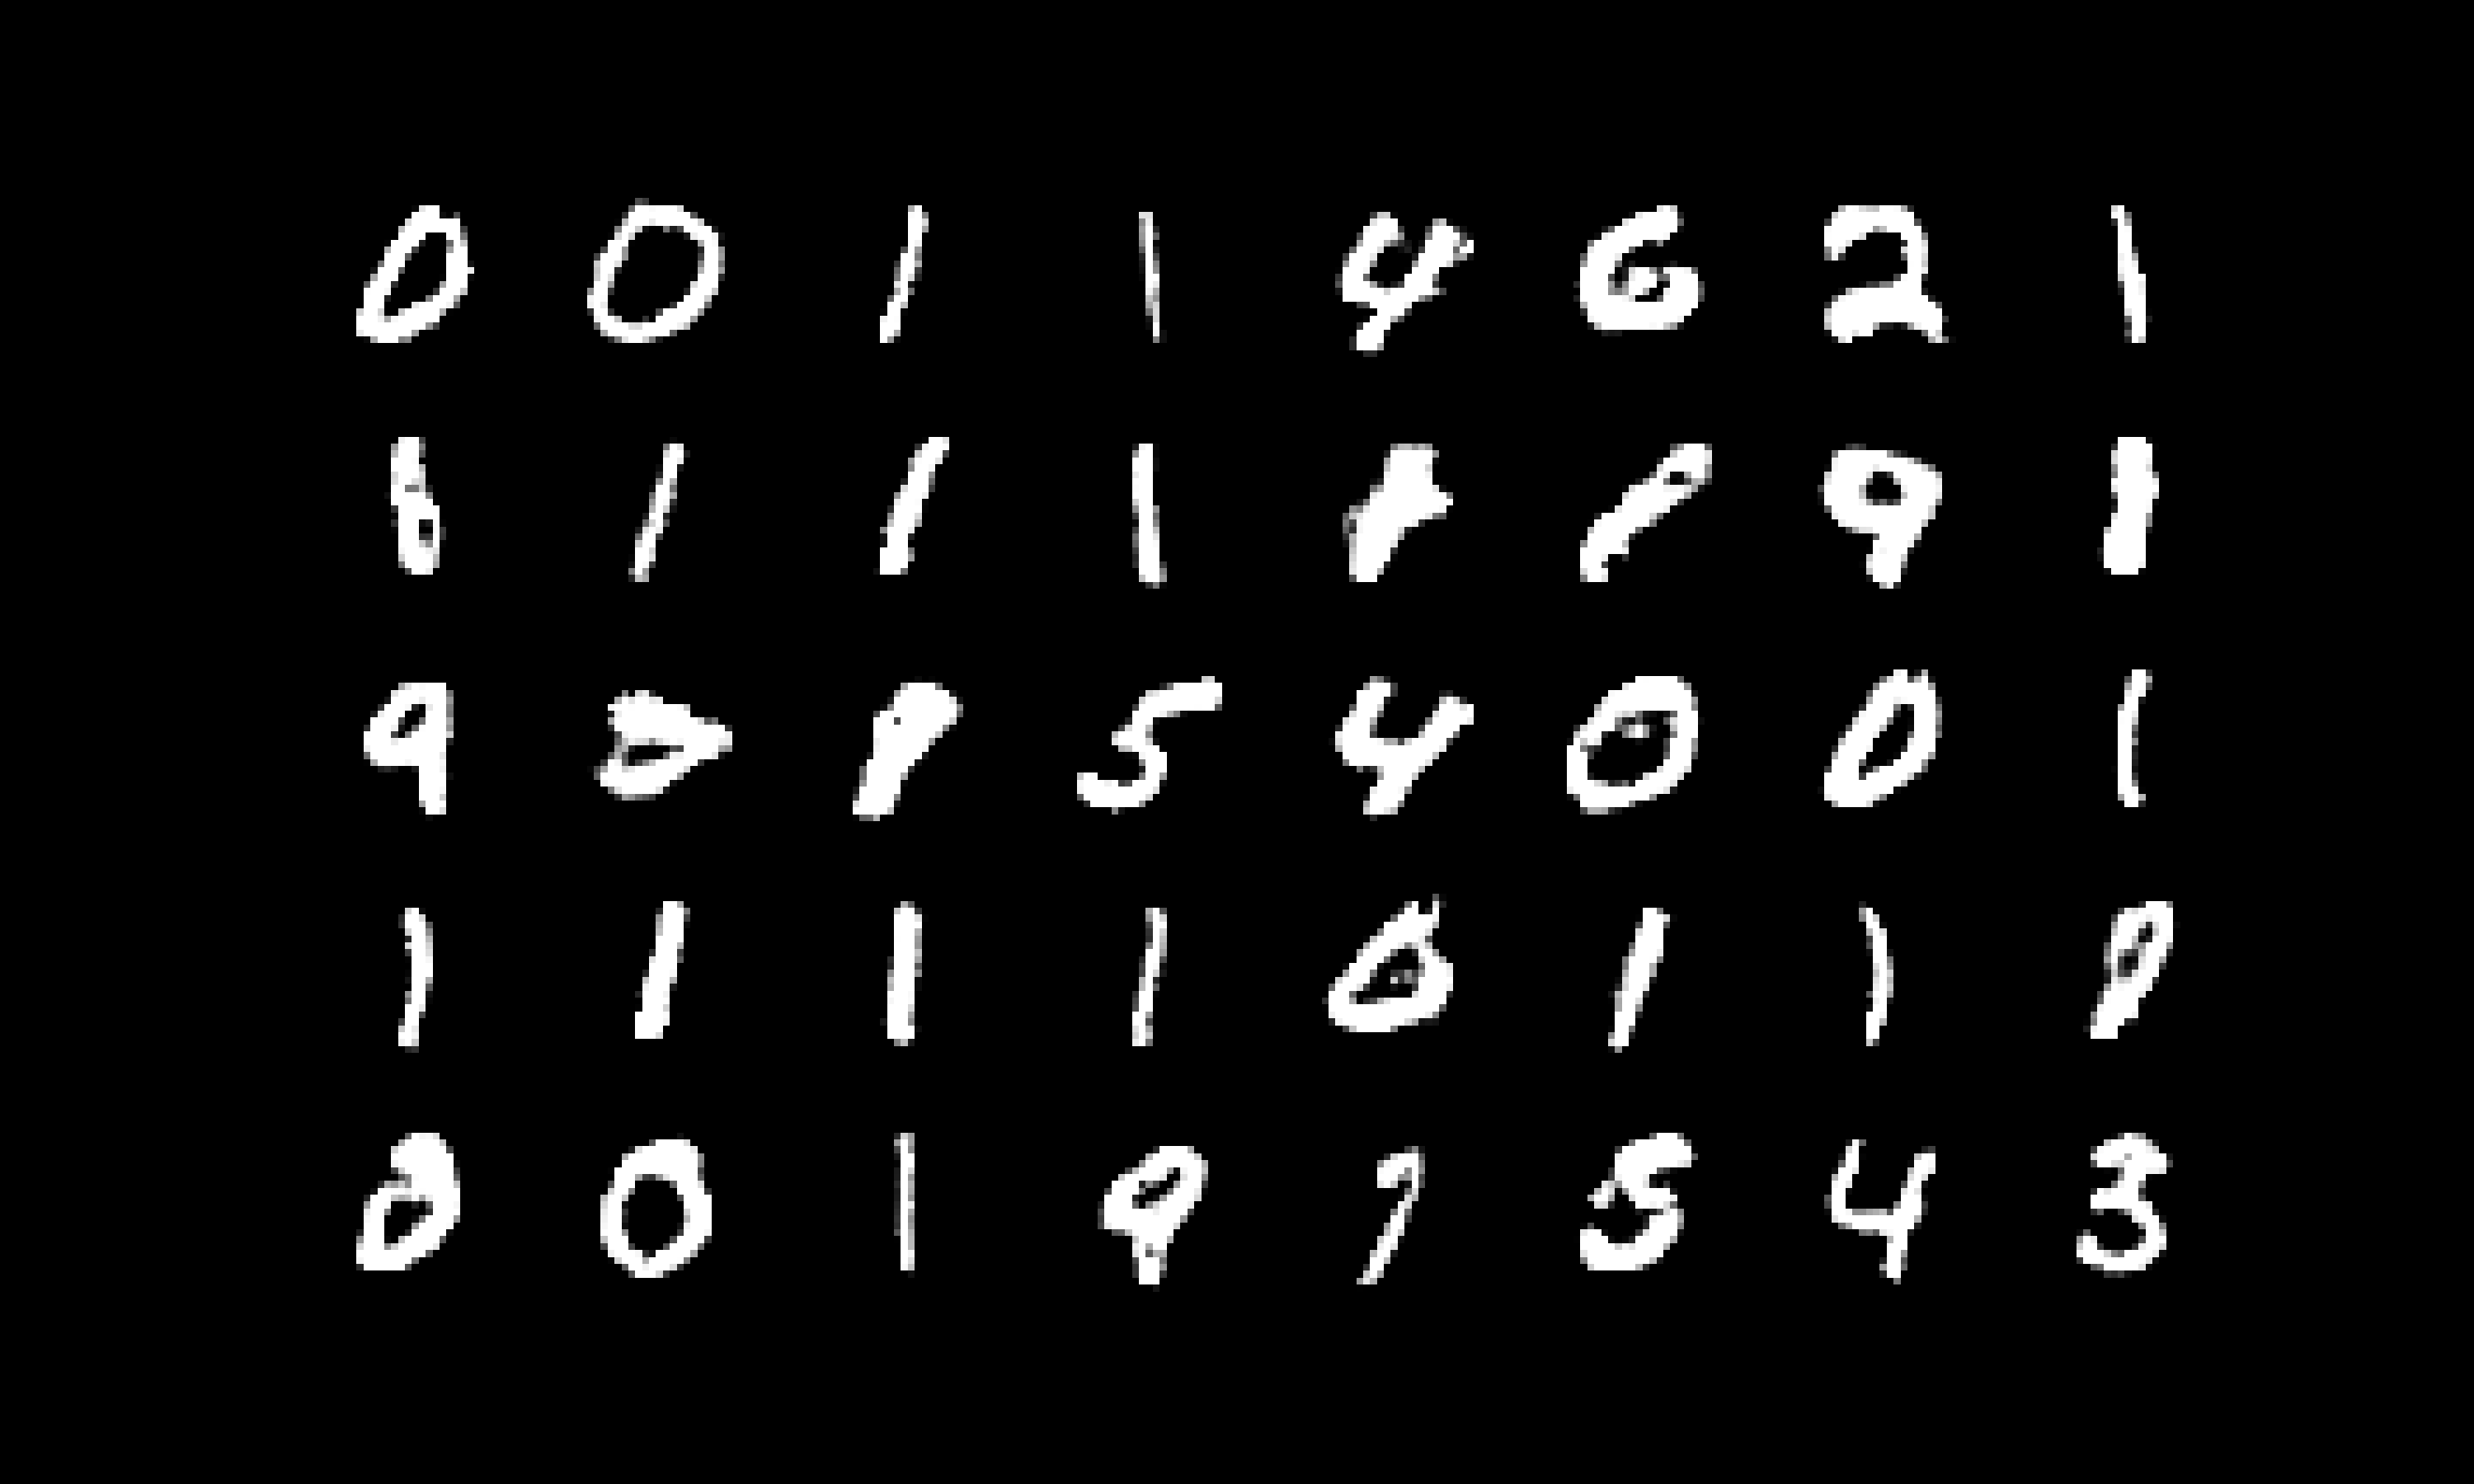 0 0 1 1 4 6 2 1
6 1 1 1 1 9 1
9 9 5 4 0 0 1
1 1 1 1 0 1 1 9
0 0 1 9 7 5 4 3